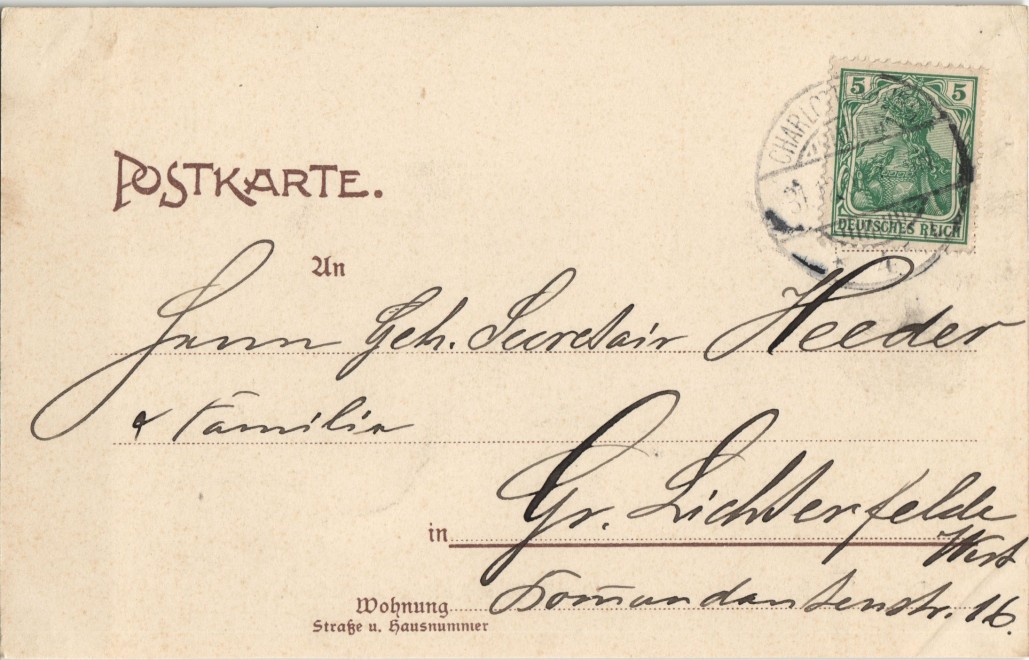 POSTKARTE.
5 5
DEUTSCHES REICH
An
Herrn Geh. Secretair Heeder
& Familie
in Gr. Lichterfelde
West
Wohnung Kom̅andantenstr. 16.
Straße u. Hausnummer